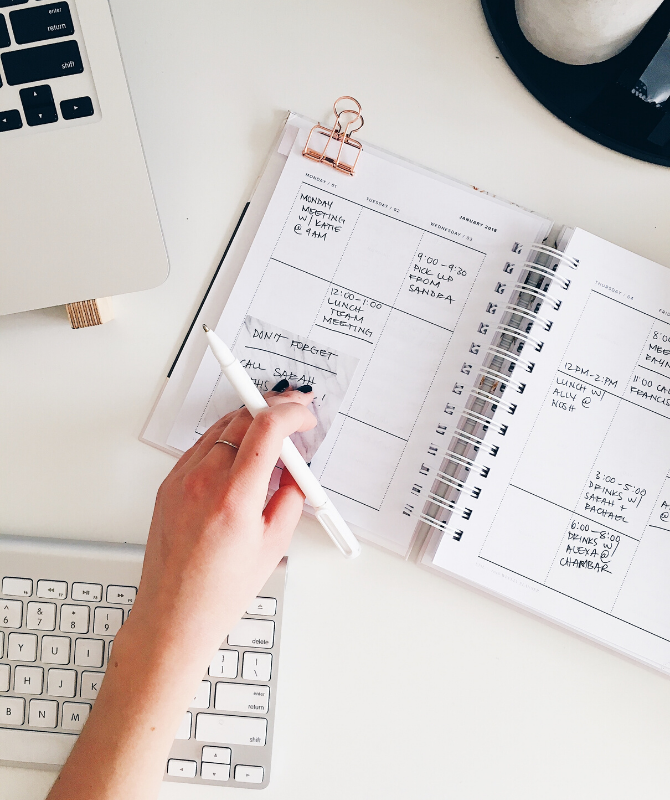 enter
return
shift
MONDAY / 01
MONDAY
MEETING
W/ KATIE
@ 9AM
TUESDAY / 02
12:00-1:00
LUNCH
TEAM
MEETING
JANUARY 2018
WEDNESDAY / 03
9:00-9:30
PICK UP
FROM
SANDRA
DON'T FORGET
CALL SARAH
THIS
THURSDAY / 04
12PM-2PM
LUNCH W/
ALLY @
NOSH
8:0
MEE
11:00
3:00-5:00
DRINKS W/
SARAH +
RACHAEL
6:00-8:00
DRINKS W/
ALEXA @
CHAMBAR
delete
enter
return
shift
^ 6
& 7
* 8
( 9
Y U I
H J K
B N M